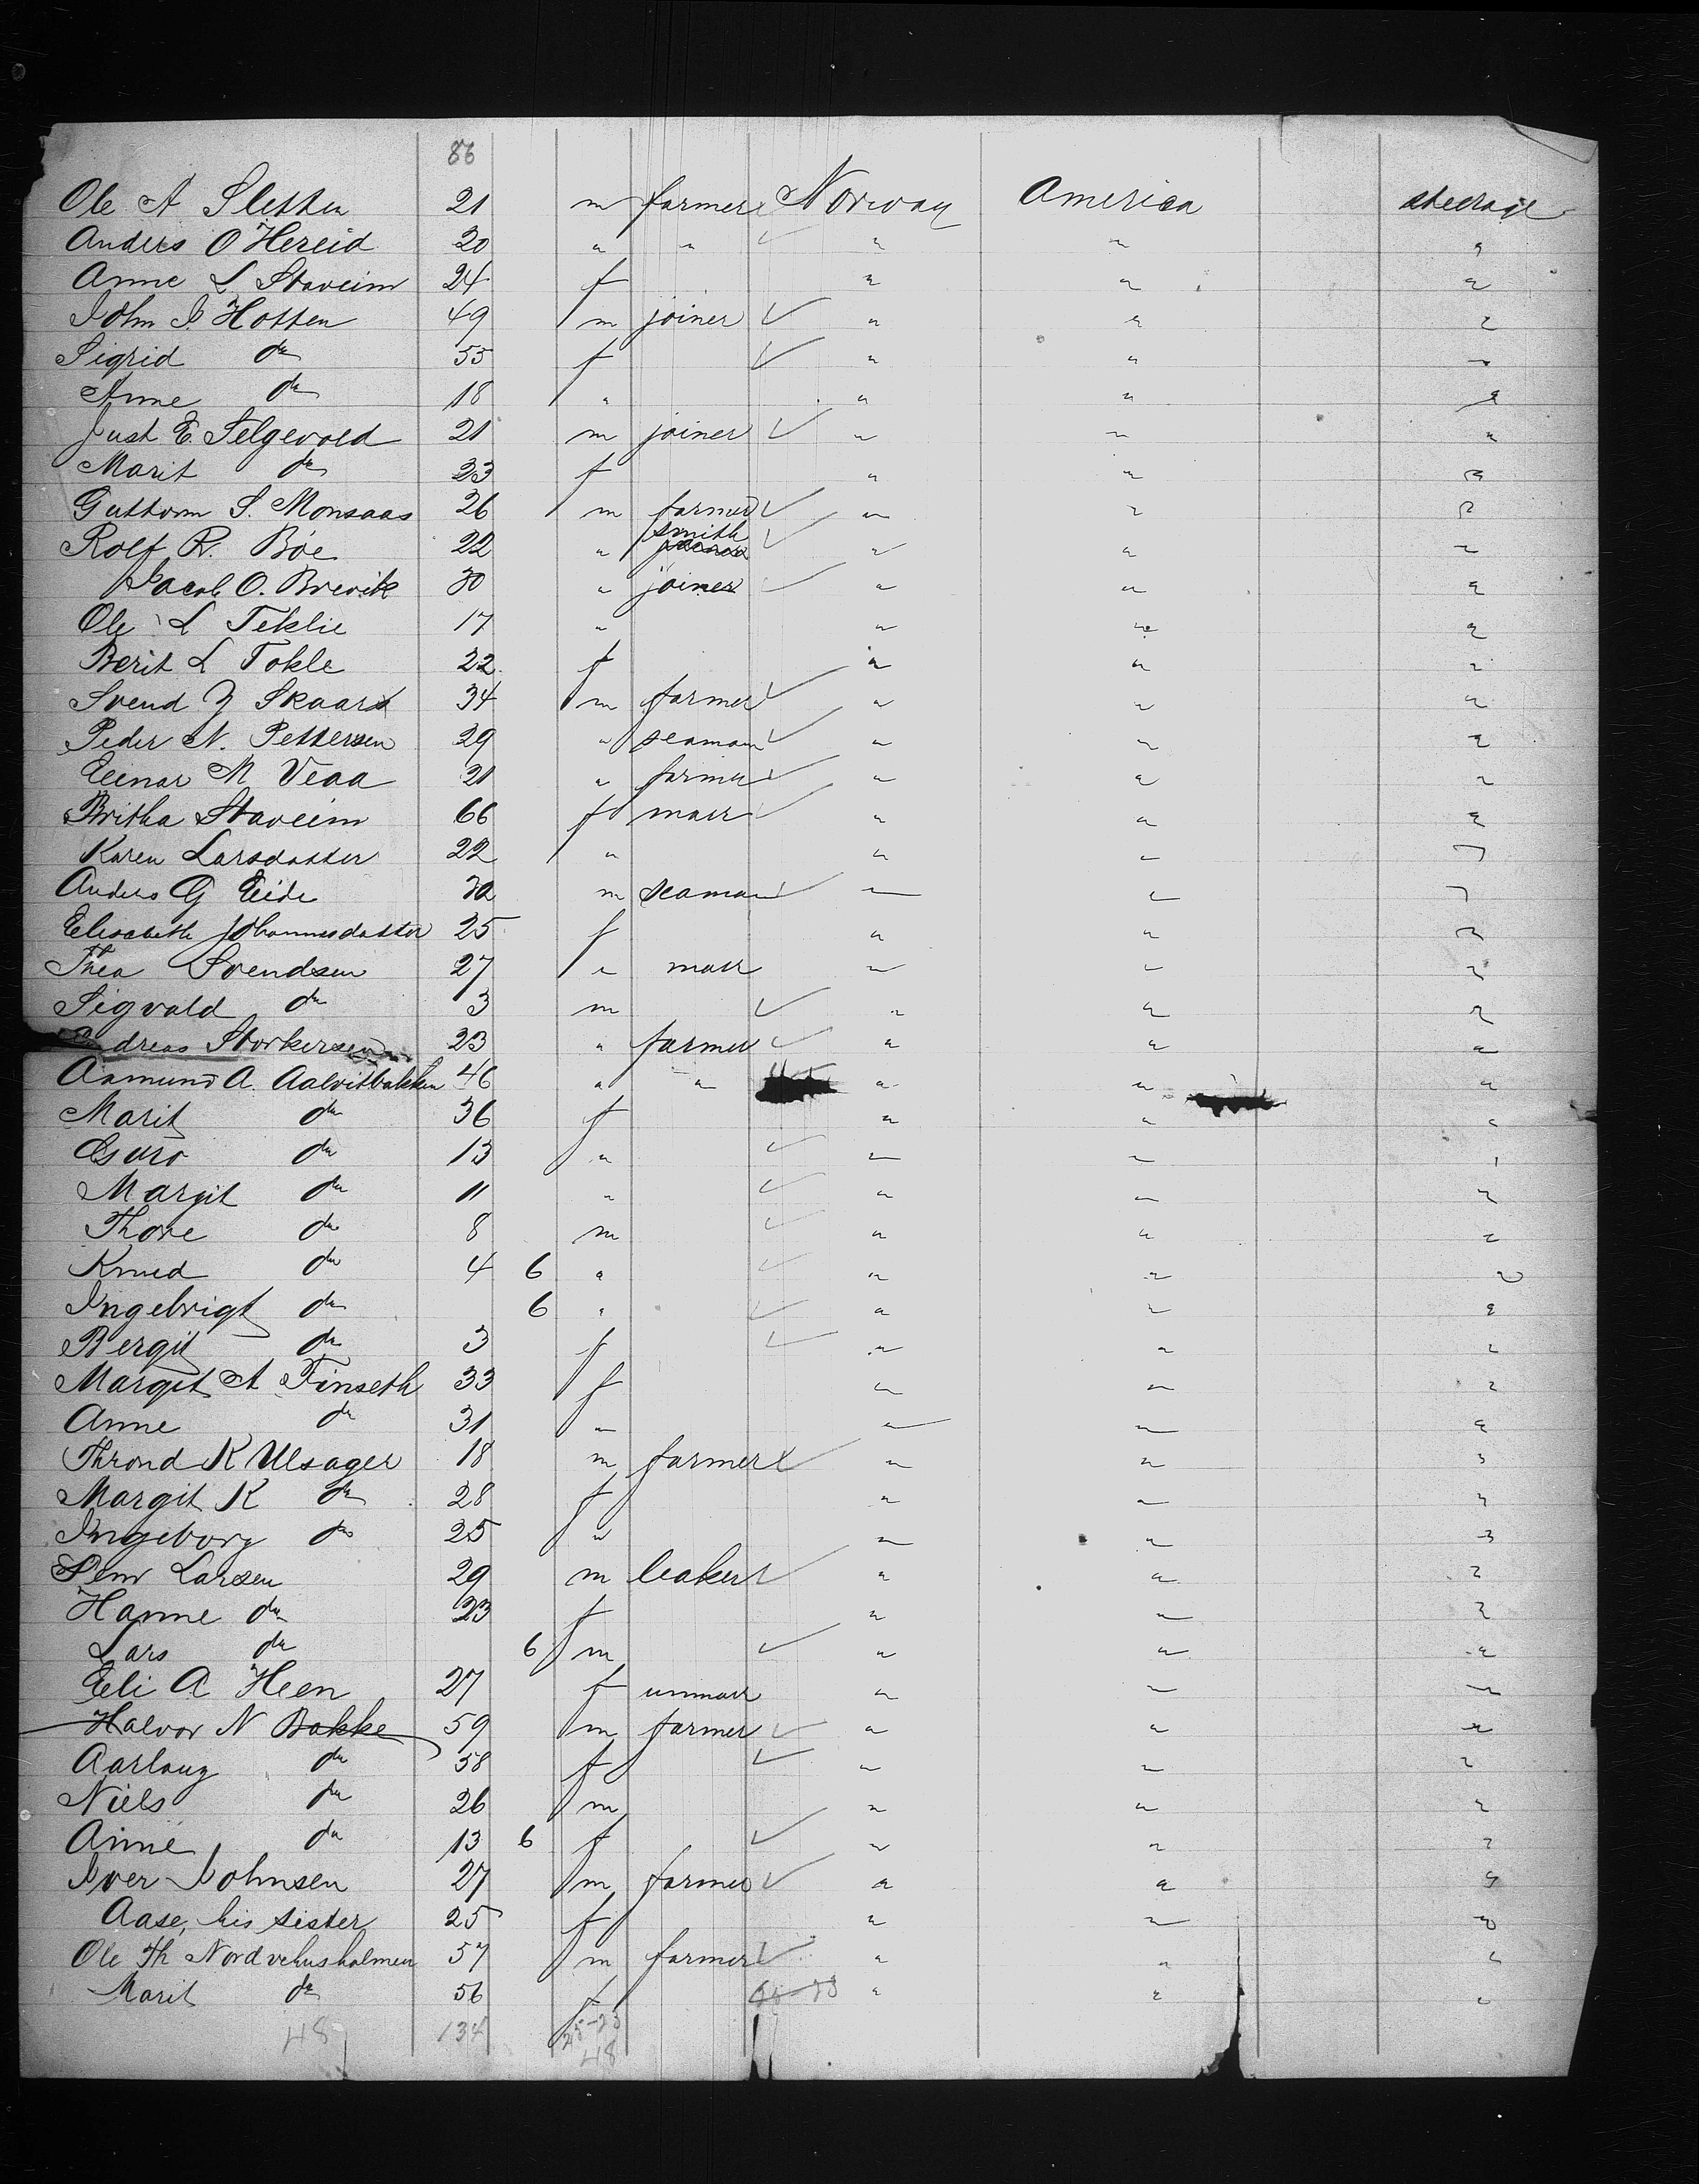 86
Ole A Sletten 21 m farmer Norway America steerage
Anders O Hereid 20 " " " " "
Anne L Staveim 24 f " " "
John J. Hotten 49 m joiner " " "
Sigrid do 55 f " " "
Anne do 18 " " " "
Just E. Selgevold 21 m joiner " " "
Marit do 23 f " " "
Guttorm S. Monsaas 26 m farmer " " "
Rolf R. Böe 22 " smith " " "
Jacob O. Brevik 30 " joiner " " "
Ole L Teklie 17 " " " "
Berit L Tokle 22 f " " "
Svend Skaar 34 m farmer " " "
Peder N. Pettersen 29 " seaman " " "
Einar M Veaa 21 " farmer " " "
Britha Staveim 66 f marr " " "
Karen Larsdatter 22 " " " "
Anders G Eide m seaman " " "
Elisabeth Johannesdatter 25 f " " "
Thea Svendsen 27 " marr " " "
Sigvald do 3 m " " "
dreas Storkersen 23 " farmer " " "
Aamund A. Aalvitbakken 46 " " " " "
Marit do 36 f " " "
Guro do 13 " " " "
Margit do 11 " " " "
Thore do 8 m " " "
Knud do 4 6 " " " "
Ingebrigt do 6 " " " "
Bergit do 3 f " " "
Margit A Finseth 33 f " " "
Anne do 31 " " " "
Thrond K Ulsager 18 m farmer " " "
Margit K do 28 f " " "
Ingeborg do 25 " " " "
Larsen 29 m " " "
Hanne do 23 f " " "
Lars do 6 m " " "
Eli A Heen 27 f unmarr " " "
Halvor N Bakke 59 m farmer " " "
Aarlaug do 58 f " " "
Niels do 26 m " " "
Anne do 13 6 f " " "
Iver Johnsen 27 m farmer " " "
Aase, his sister 25 f " " "
Ole Th Nordvehusholmen 57 m farmer " " "
Marit do 56 f " " "
48 134 25-23
48